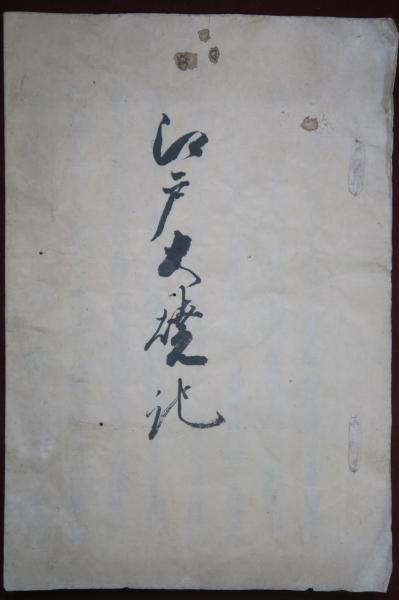 江戸大焼記